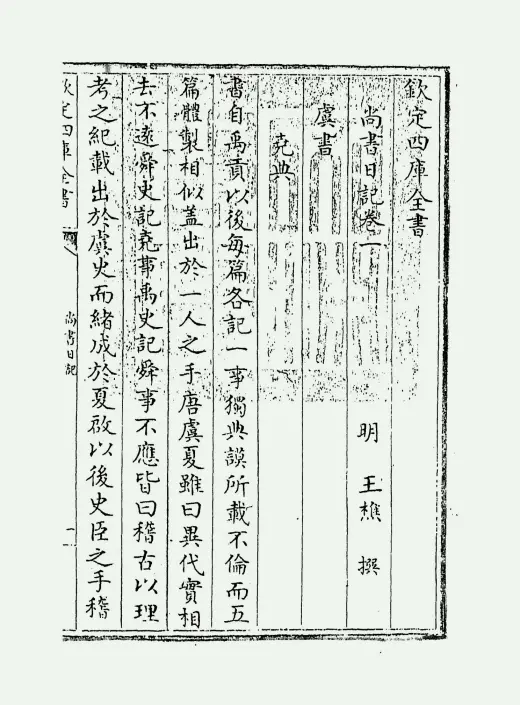 欽定四庫全書
尚書日記卷一
明 王樵 撰
虞書
堯典
書自禹貢以後每篇各記一事獨典謨所載不倫而五
篇體製相似蓋出於一人之手唐虞夏雖曰異代實相
去不遠舜史記堯事禹史記舜事不應皆曰稽古以理
考之紀載出於虞史而緒成於夏啟以後史臣之手稽
欽定四庫全書
尚書日記
一